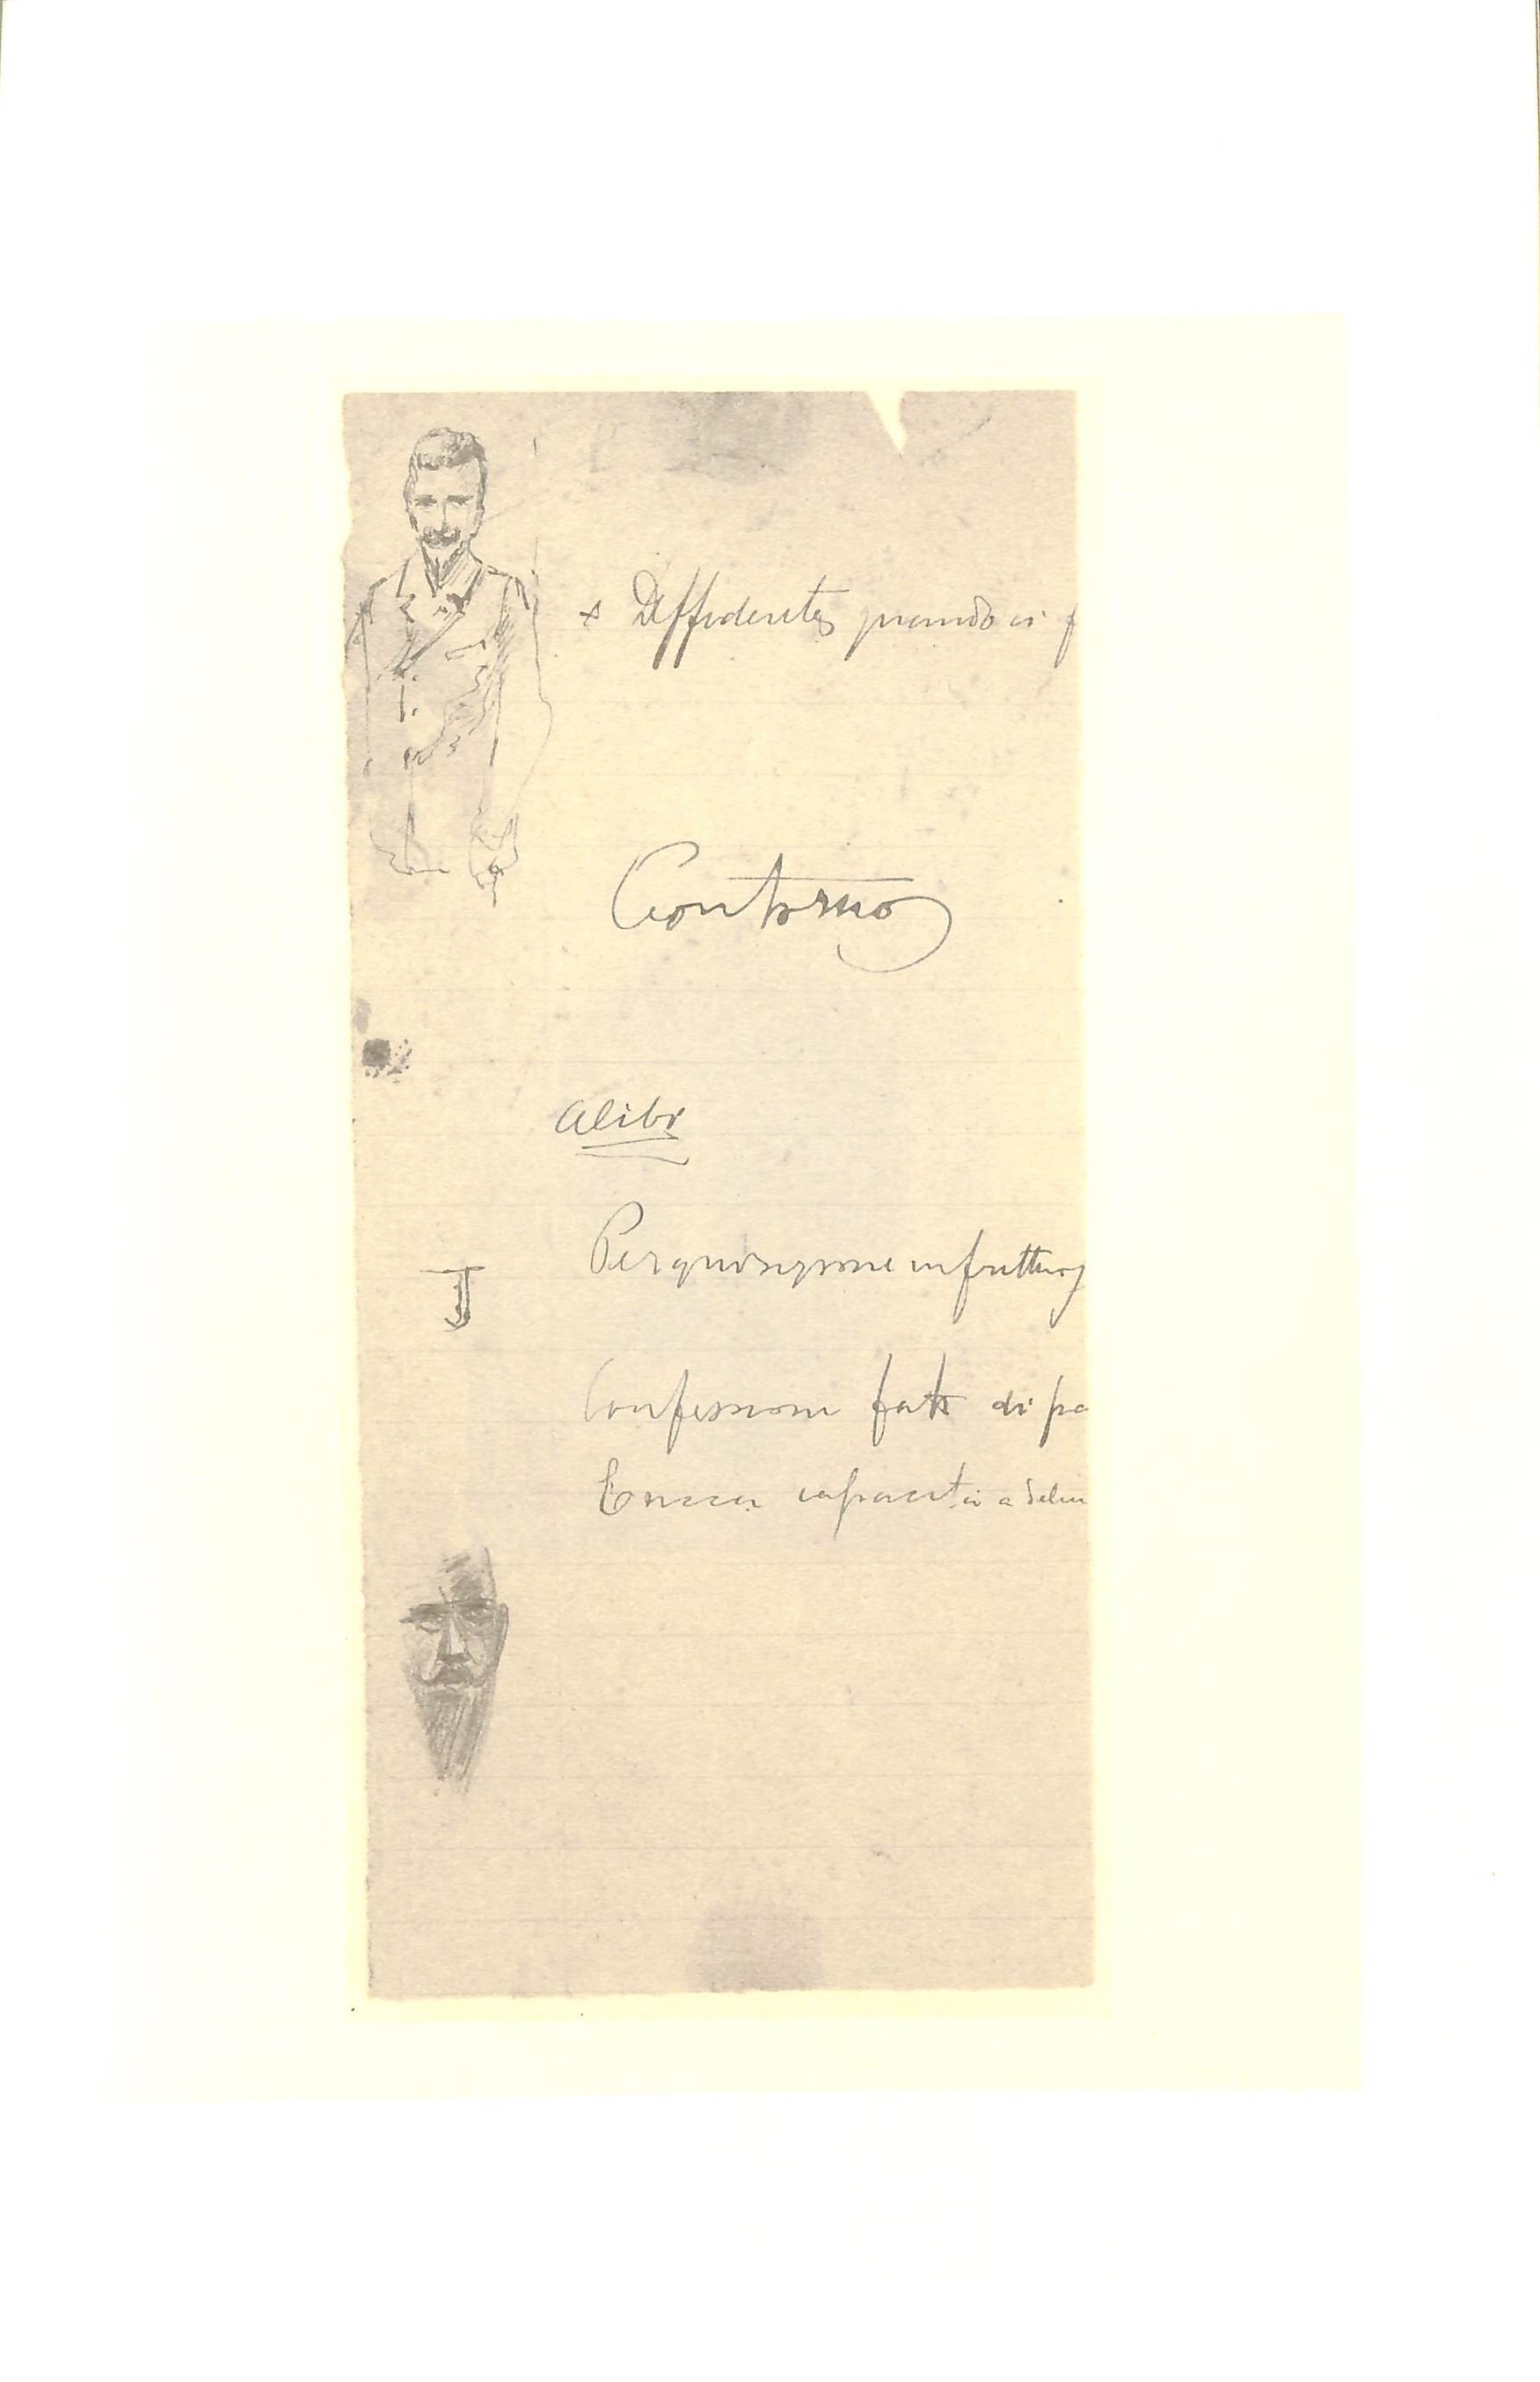 + Diffidente quando ci f
Contorno
Alibi
Perquisizione infruttuos
J
Confessioni fatte di pa
capacità a delin